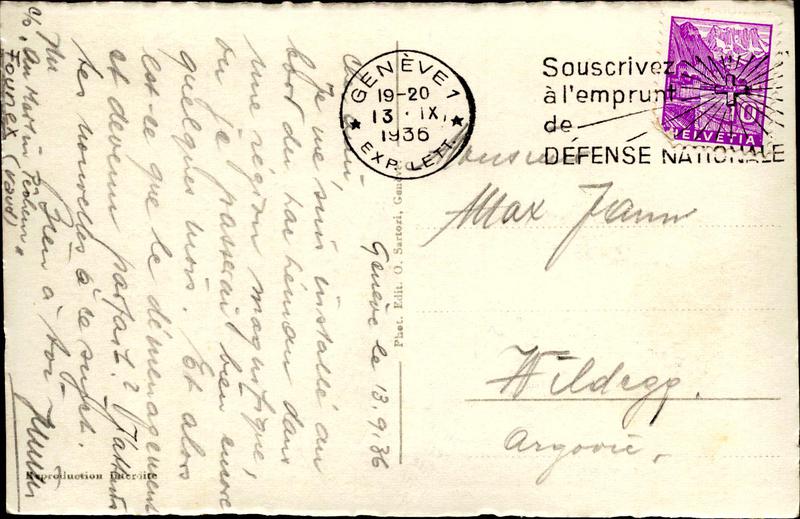 Genève le 13.9.36
Cher ami,
Je me suis installé au
bord du lac Léman dans
une région magnifique,
où je passerai bien encore
quelques mois. Et alors
est-ce que le déménagement
et devenu parfait? J'attends
tes nouvelles à ce sujet.
Bien à toi
c/o, Au Martin Pêcheur
Founex (Vaud)
Phot. Edit. O. Sartori, Genève
Reproduction interdite
GENÈVE 1
19-20
13. IX.
1936
EXP. LETT.
Souscrivez
à l'emprunt
de
DÉFENSE NATIONALE
10
HELVETIA
Monsieur
Max
Wildegg.
Argovie.